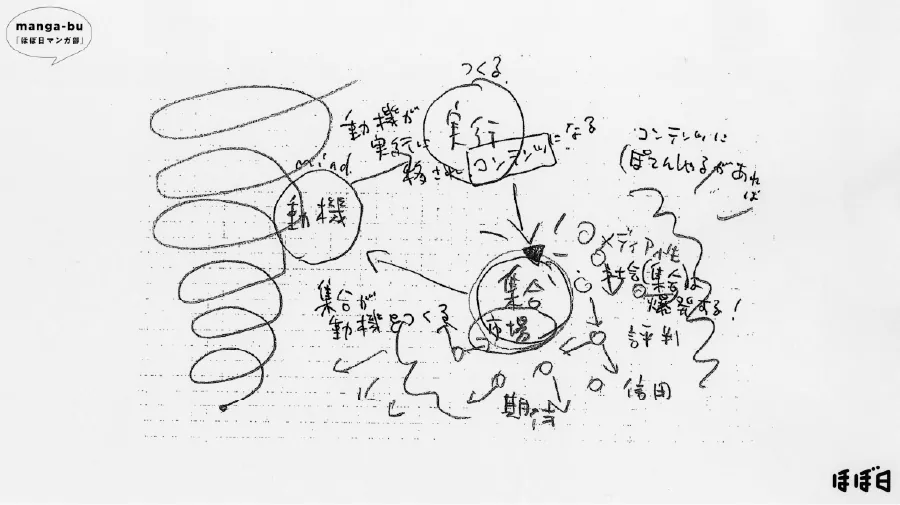 manga-bu
「ほぼ日マンガ部」
つくる
実行
動機が
実行に
移され
コンテンツになる
mind
動機
コンテンツに
(ぽてんしゃるがあれば
メディア性
社会(集合)は
爆発する!
集合
市場
集合が
動機をつくる
評判
信用
期待
ほぼ日